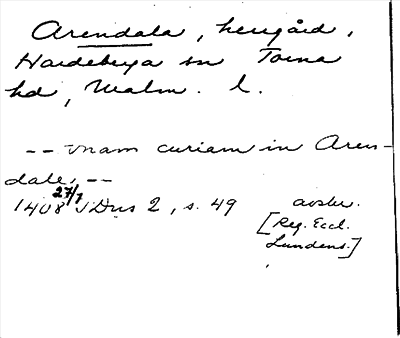 Arendala, herrgård,
Hardeberga sn Torna
hd, Malm. l.
-- vnam curiam in Aren-
dale, --
1408 27/7 SDns 2, s. 49 avskr.
[Reg. Eccl.
Lundens.]